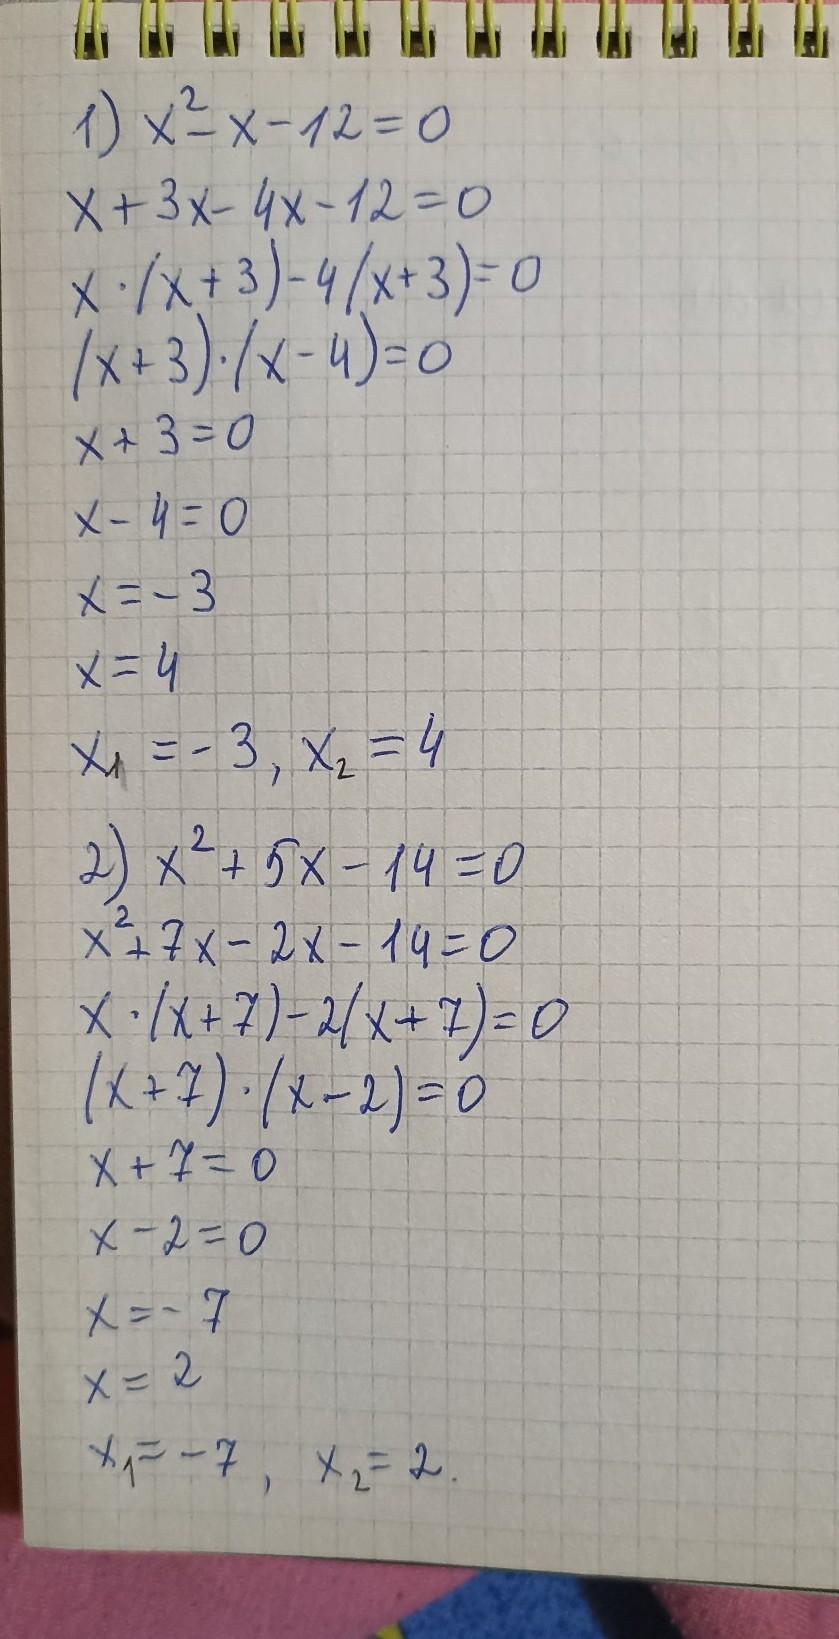 1) x²-x-12=0
x+3x-4x-12=0
x·(x+3)-4(x+3)=0
(x+3)·(x-4)=0
x+3=0
x-4=0
x=-3
x=4
x₁=-3, x₂=4
2) x²+5x-14=0
x²+7x-2x-14=0
x·(x+7)-2(x+7)=0
(x+7)·(x-2)=0
x+7=0
x-2=0
x=-7
x=2
x₁=-7, x₂=2.